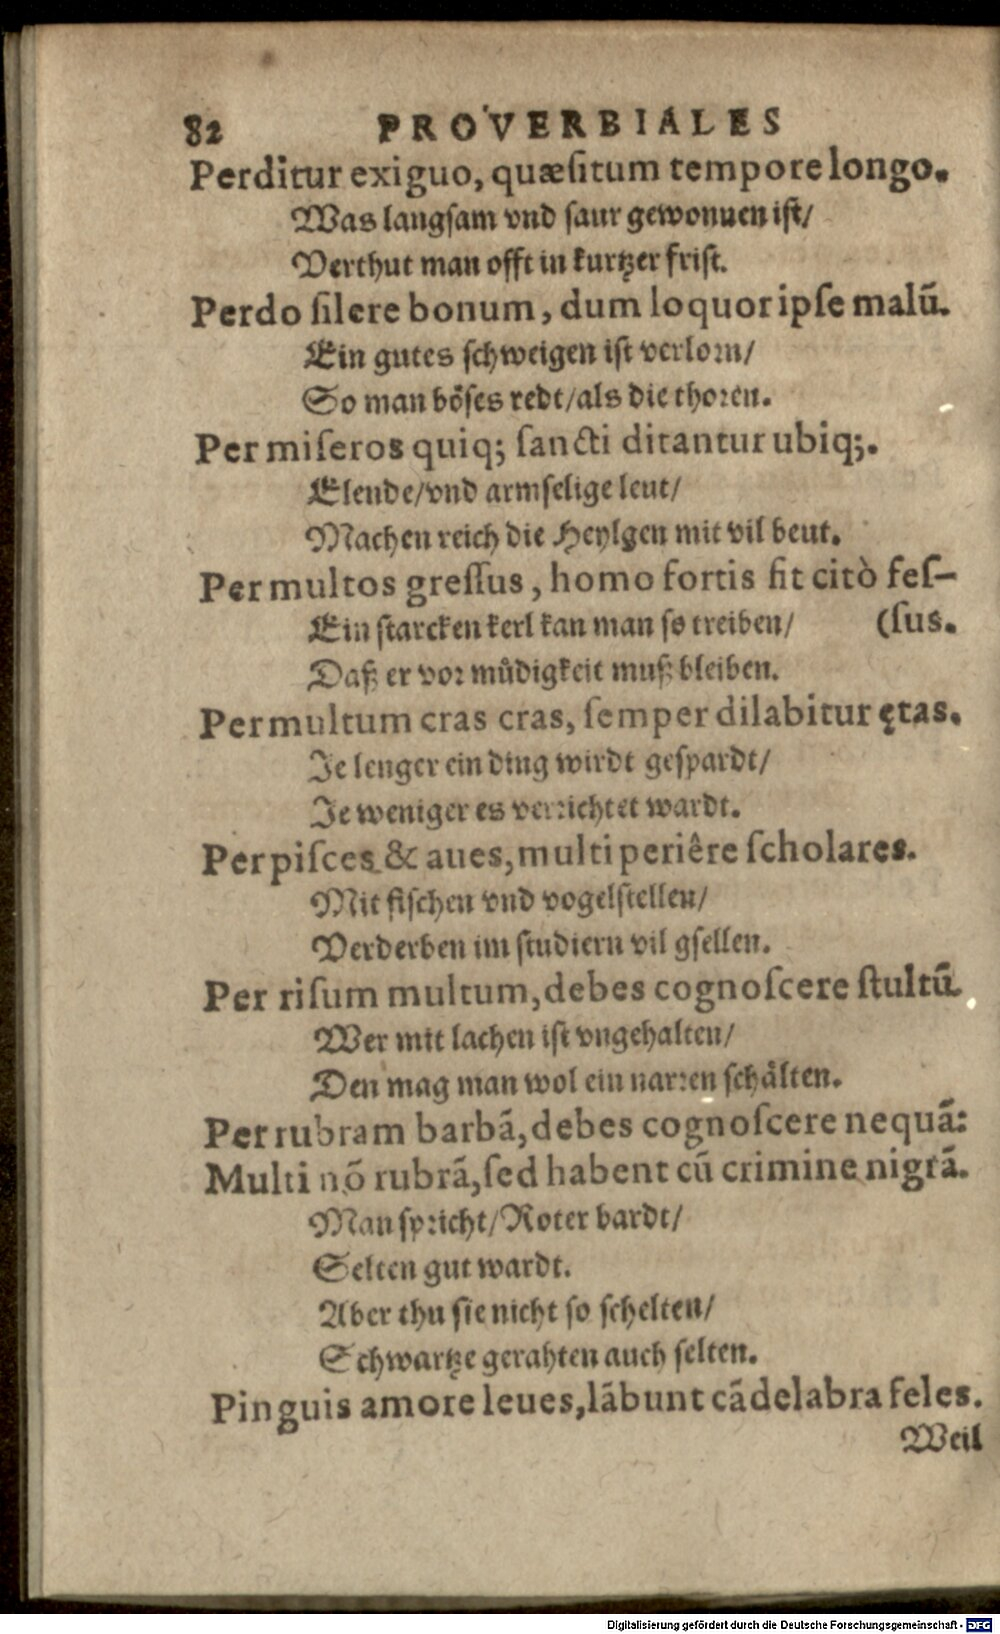 82 PROVERBIALES
Perditur exiguo, quæſitum tempore longo.
Was langſam vnd ſaur gewonnen iſt/
Verthut man offt in kurtzer friſt.
Perdo ſilere bonum, dum loquor ipſe malū.
Ein gutes ſchweigen iſt verlorn/
So man böſes redt/als die thoren.
Per miſeros quiq; ſancti ditantur ubiq;.
Elende/vnd armſelige leut/
Machen reich die Heylgen mit vil beut.
Per multos greſſus, homo fortis fit citò feſ-
Ein ſtarcken kerl kan man ſo treiben/ (ſus.
Daß er vor můdigkeit muß bleiben.
Per multum cras cras, ſemper dilabitur ętas.
Je lenger ein ding wirdt geſpardt/
Je weniger es verrichtet wardt.
Per piſces & aues, multi periêre ſcholares.
Mit fiſchen vnd vogelſtellen/
Verderben im ſtudiern vil gſellen.
Per riſum multum, debes cognoſcere ſtultū.
Wer mit lachen iſt vngehalten/
Den mag man wol ein narren ſchälten.
Per rubram barbā, debes cognoſcere nequā:
Multi nō rubrā, ſed habent cū crimine nigrā.
Man ſpricht/Roter bardt/
Selten gut wardt.
Aber thu ſie nicht ſo ſchelten/
Schwartze gerahten auch ſelten.
Pinguis amore leues, lābunt cādelabra feles.
Weil
Digitalisierung gefördert durch die Deutsche Forschungsgemeinschaft - DFG